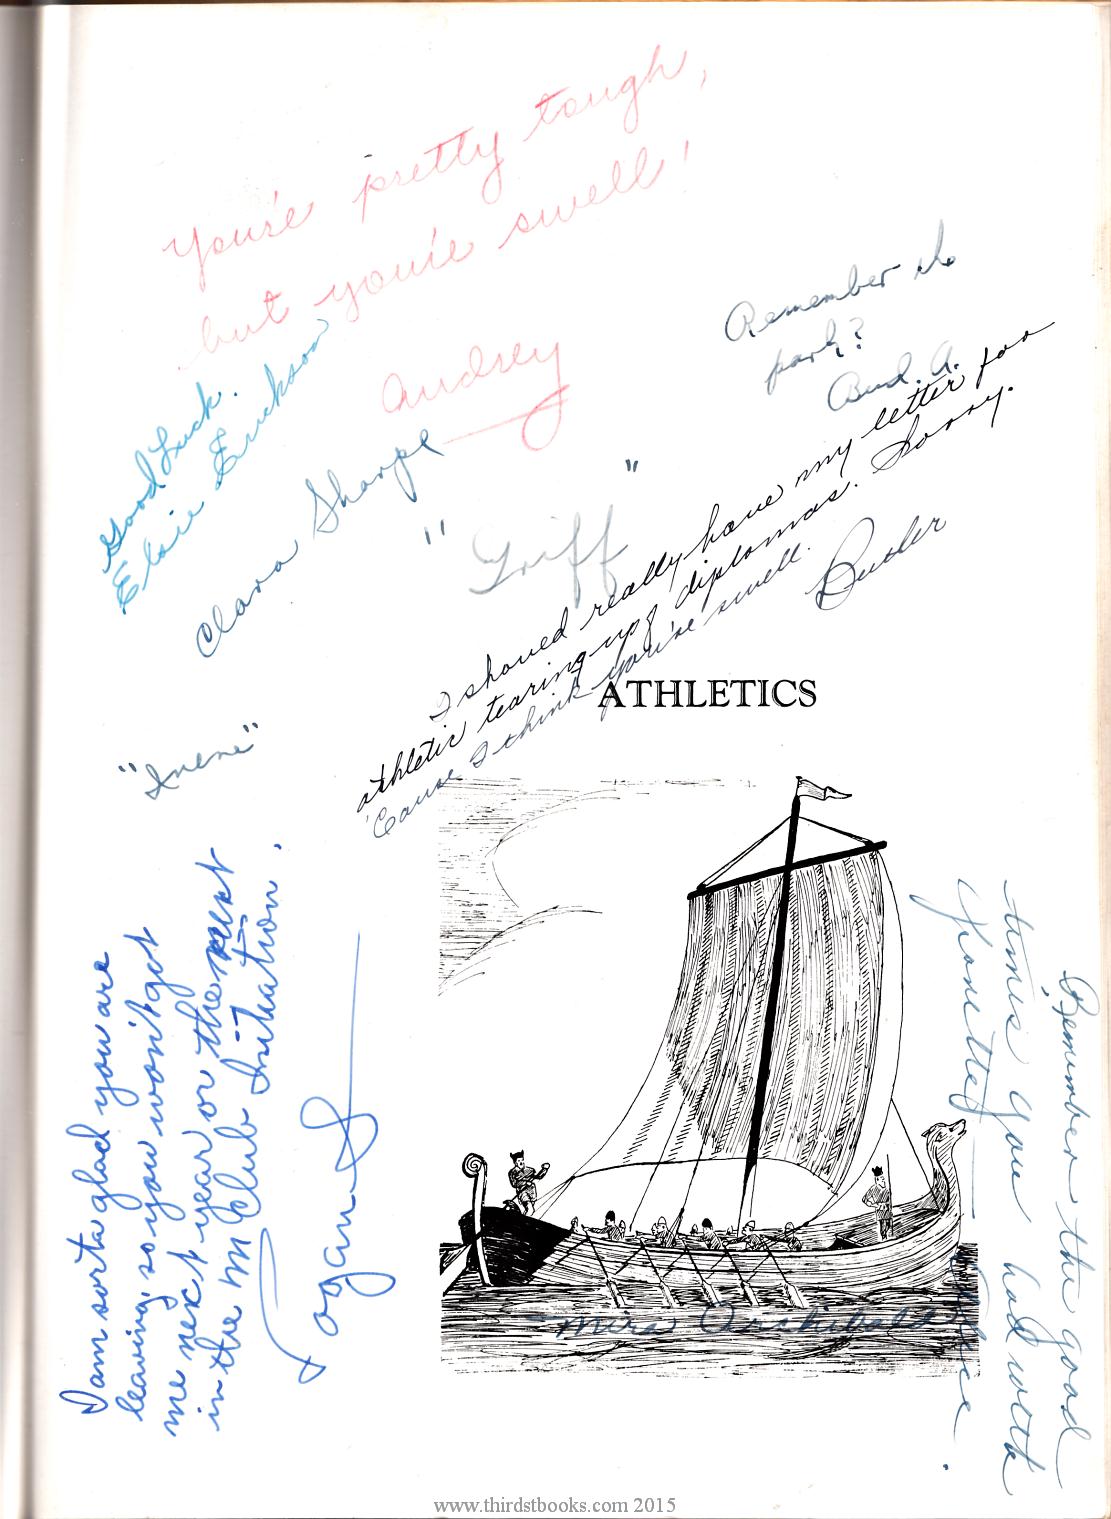 You're pretty tough,
but you're swell!
Audrey
Remember the
park?
Bud. A.
Good Luck.
Elsie Erickson
Clara Sharpe
"Griff"
I should really have my letter for
athletic tearing up of diplomas. Sorry.
'Cause I think you're swell.
Butler
ATHLETICS
"Irene"
I am sorta glad you are
leaving, so you won't get
me next year or the next
in the M Club Initation.
Logan
Remember the good
times you had with
Mira Archibald
www.thirdstbooks.com 2015